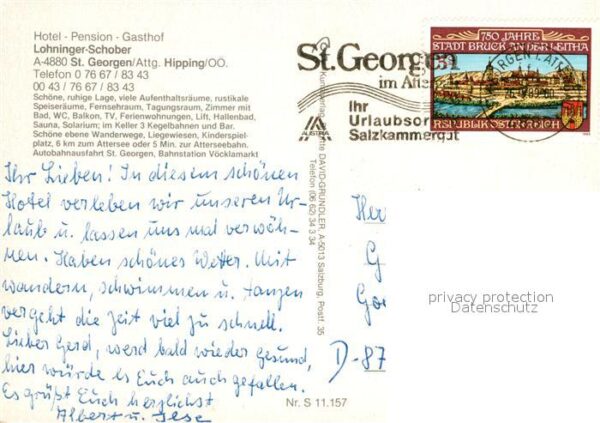 Hotel - Pension - Gasthof
Lohninger-Schober
A-4880 St. Georgen/Attg. Hipping/OÖ.
Telefon 0 76 67 / 83 43
00 43 / 76 67 / 83 43
Schöne, ruhige Lage, viele Aufenthaltsräume, rustikale
Speiseräume, Fernsehraum, Tagungsraum, Zimmer mit
Bad, WC, Balkon, TV, Ferienwohnungen, Lift, Hallenbad,
Sauna, Solarium; im Keller 3 Kegelbahnen und Bar.
Schöne ebene Wanderwege, Liegewiesen, Kinderspiel-
platz, 6 km zum Attersee oder 5 Min. zur Atterseebahn.
Autobahnausfahrt St. Georgen, Bahnstation Vöcklamarkt
Ihr Lieben! In diesem schönen
Hotel verleben wir unseren Ur-
laub u. lassen uns mal verwöh-
nen. Haben schönes Wetter. Mit
wandern, schwimmen u. tanzen
vergeht die Zeit viel zu schnell.
Lieber Gerd, werd bald wieder gesund,
hier würde es Euch auch gefallen.
Es grüßt Euch herzlichst
Albert u. Ilse
DAVID-GRÜNDLER, A-5013 Salzburg, Postf. 35
Telefon (06 62) 34 3 34
Nr. S 11.157
St. Georgen
im Atter
Ihr
Urlaubsor
Salzkammergut
AUSTRIA
750 JAHRE
STADT BRUCK AN DER LEITHA
S 5
REPUBLIK ÖSTERREICH
Her
G
Goe
D-87
privacy protection
Datenschutz